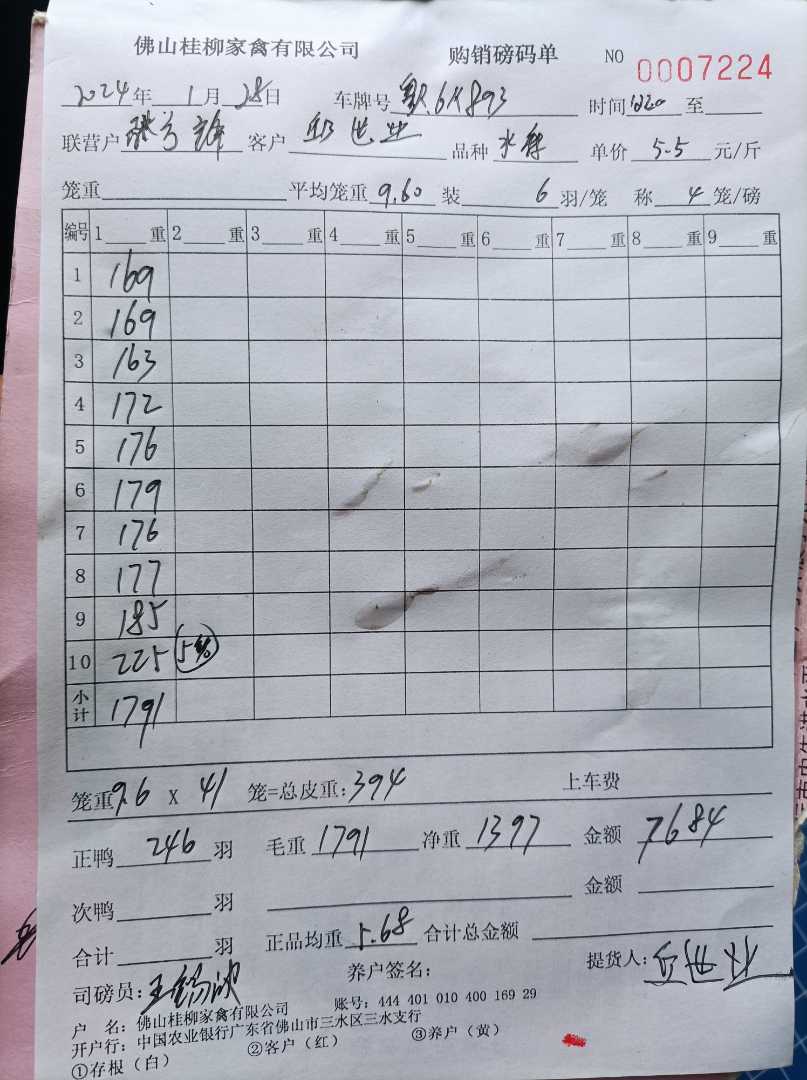 佛山桂柳家禽有限公司 购销磅码单 NO 0007224
2024年 1月 28日 车牌号 6X893 时间1220至
联营户 客户 邱世业 品种 水 单价 5.5 元/斤
笼重 平均笼重 9.60 装 6 羽/笼 称 4 笼/磅
编号 1 重 2 重 3 重 4 重 5 重 6 重 7 重 8 重 9 重
1 169
2 169
3 163
4 172
5 176
6 179
7 176
8 177
9 185
10 225 5
小计 1791
笼重9.6 X 41 笼=总皮重:394 上车费
正鸭 246 羽 毛重 1791 净重 1397 金额 7684
次鸭 羽 金额
合计 羽 正品均重 5.68 合计总金额
司磅员: 王锡 养户签名: 提货人: 丘世业
户 名: 佛山桂柳家禽有限公司 账号: 444 401 010 400 169 29
开户行: 中国农业银行广东省佛山市三水区三水支行
①存根（白） ②客户（红） ③养户（黄）